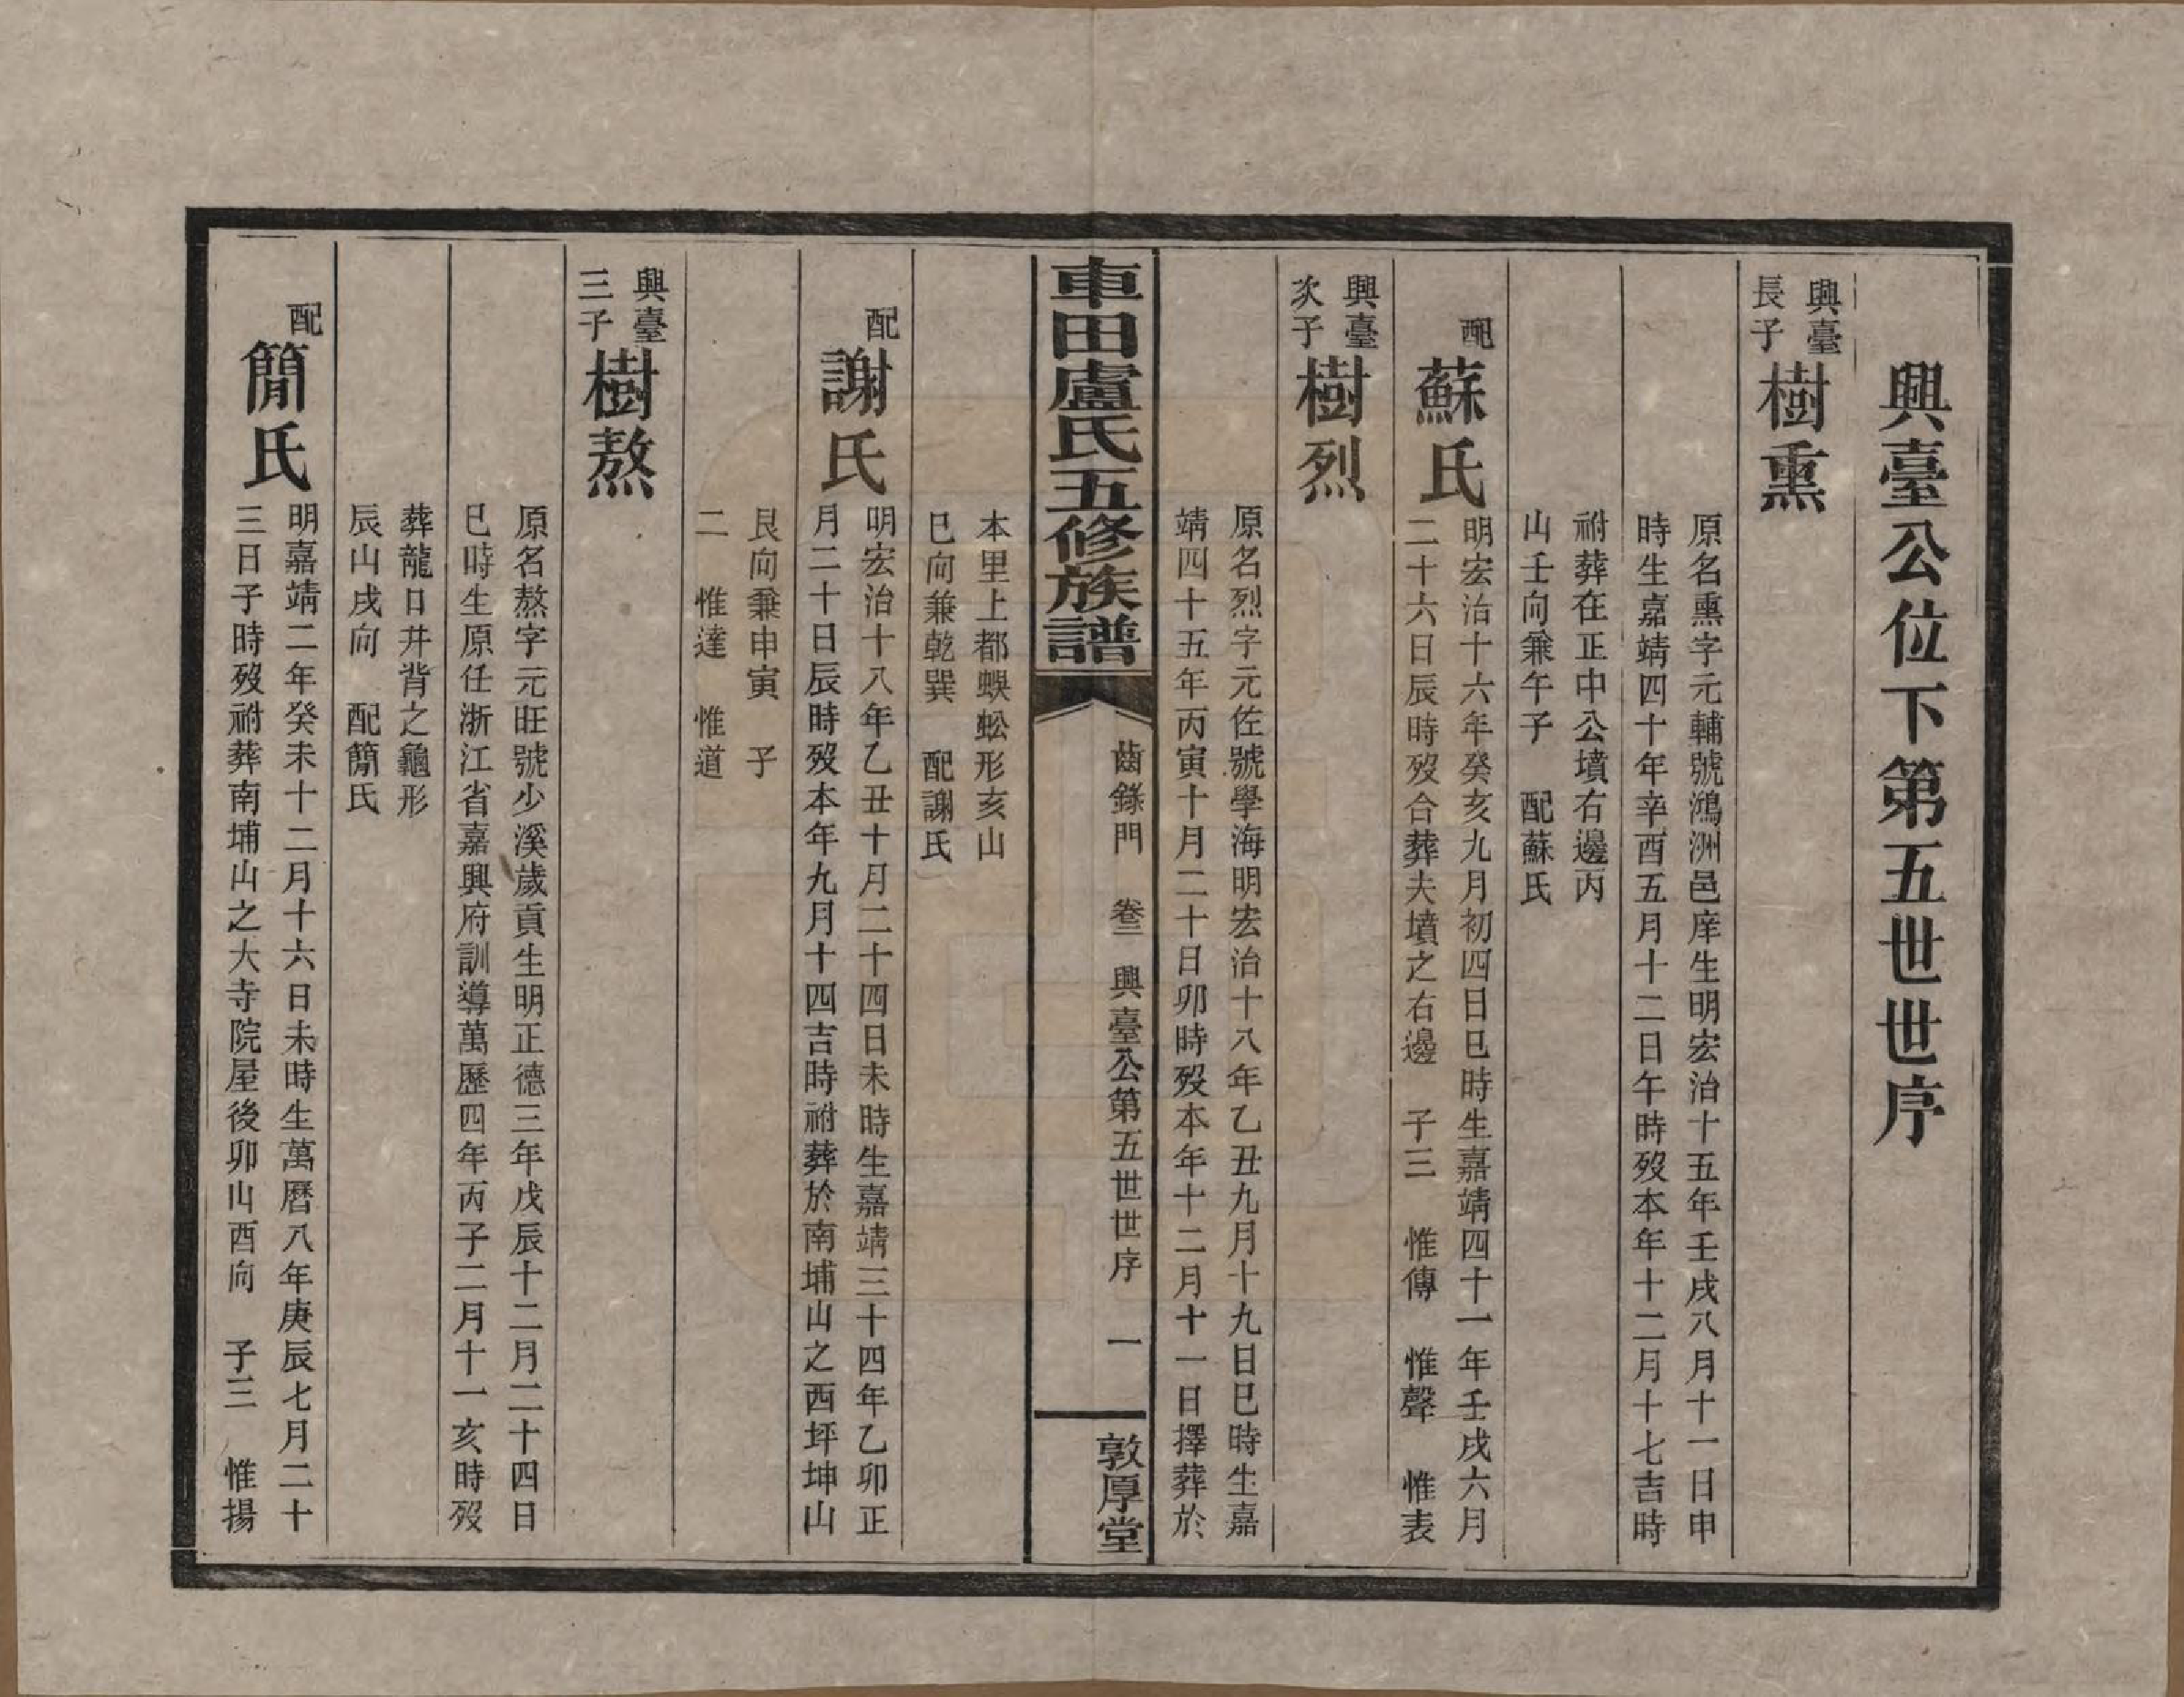 興臺公位下第五世世序
興臺
長子
樹熏
原名熏字元輔號鴻洲邑庠生明宏治十五年壬戌八月十一日申
時生嘉靖四十年辛酉五月十二日午時歿本年十二月十七吉時
祔葬在正中公墳右邊丙
山壬向兼午子　配蘇氏
配
蘇氏
明宏治十六年癸亥九月初四日巳時生嘉靖四十一年壬戌六月
二十六日辰時歿合葬夫墳之右邊　子三　惟傳　惟聲　惟表
興臺
次子
樹烈
原名烈字元佐號學海明宏治十八年乙丑九月十九日巳時生嘉
靖四十五年丙寅十月二十日卯時歿本年十二月十一日擇葬於
車田盧氏五修族譜
齒錄門　卷二　興臺公第五世世序　一
敦厚堂
本里上都蜈蚣形亥山
巳向兼乾巽　配謝氏
配
謝氏
明宏治十八年乙丑十月二十四日未時生嘉靖三十四年乙卯正
月二十日辰時歿本年九月十四吉時祔葬於南埔山之西坪坤山
艮向兼申寅　子
二　惟達　惟道
興臺
三子
樹熬
原名熬字元旺號少溪歲貢生明正德三年戊辰十二月二十四日
巳時生原任浙江省嘉興府訓導萬歷四年丙子二月十一亥時歿
葬龍口井背之龜形
辰山戌向　配簡氏
配
簡氏
明嘉靖二年癸未十二月十六日未時生萬曆八年庚辰七月二十
三日子時歿祔葬南埔山之大寺院屋後卯山酉向　子三　惟揚